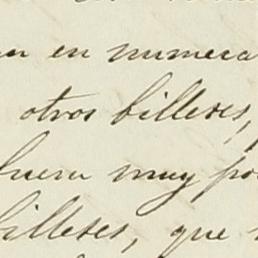 en numera
otros billetes,
fuera muy po
billetes, que